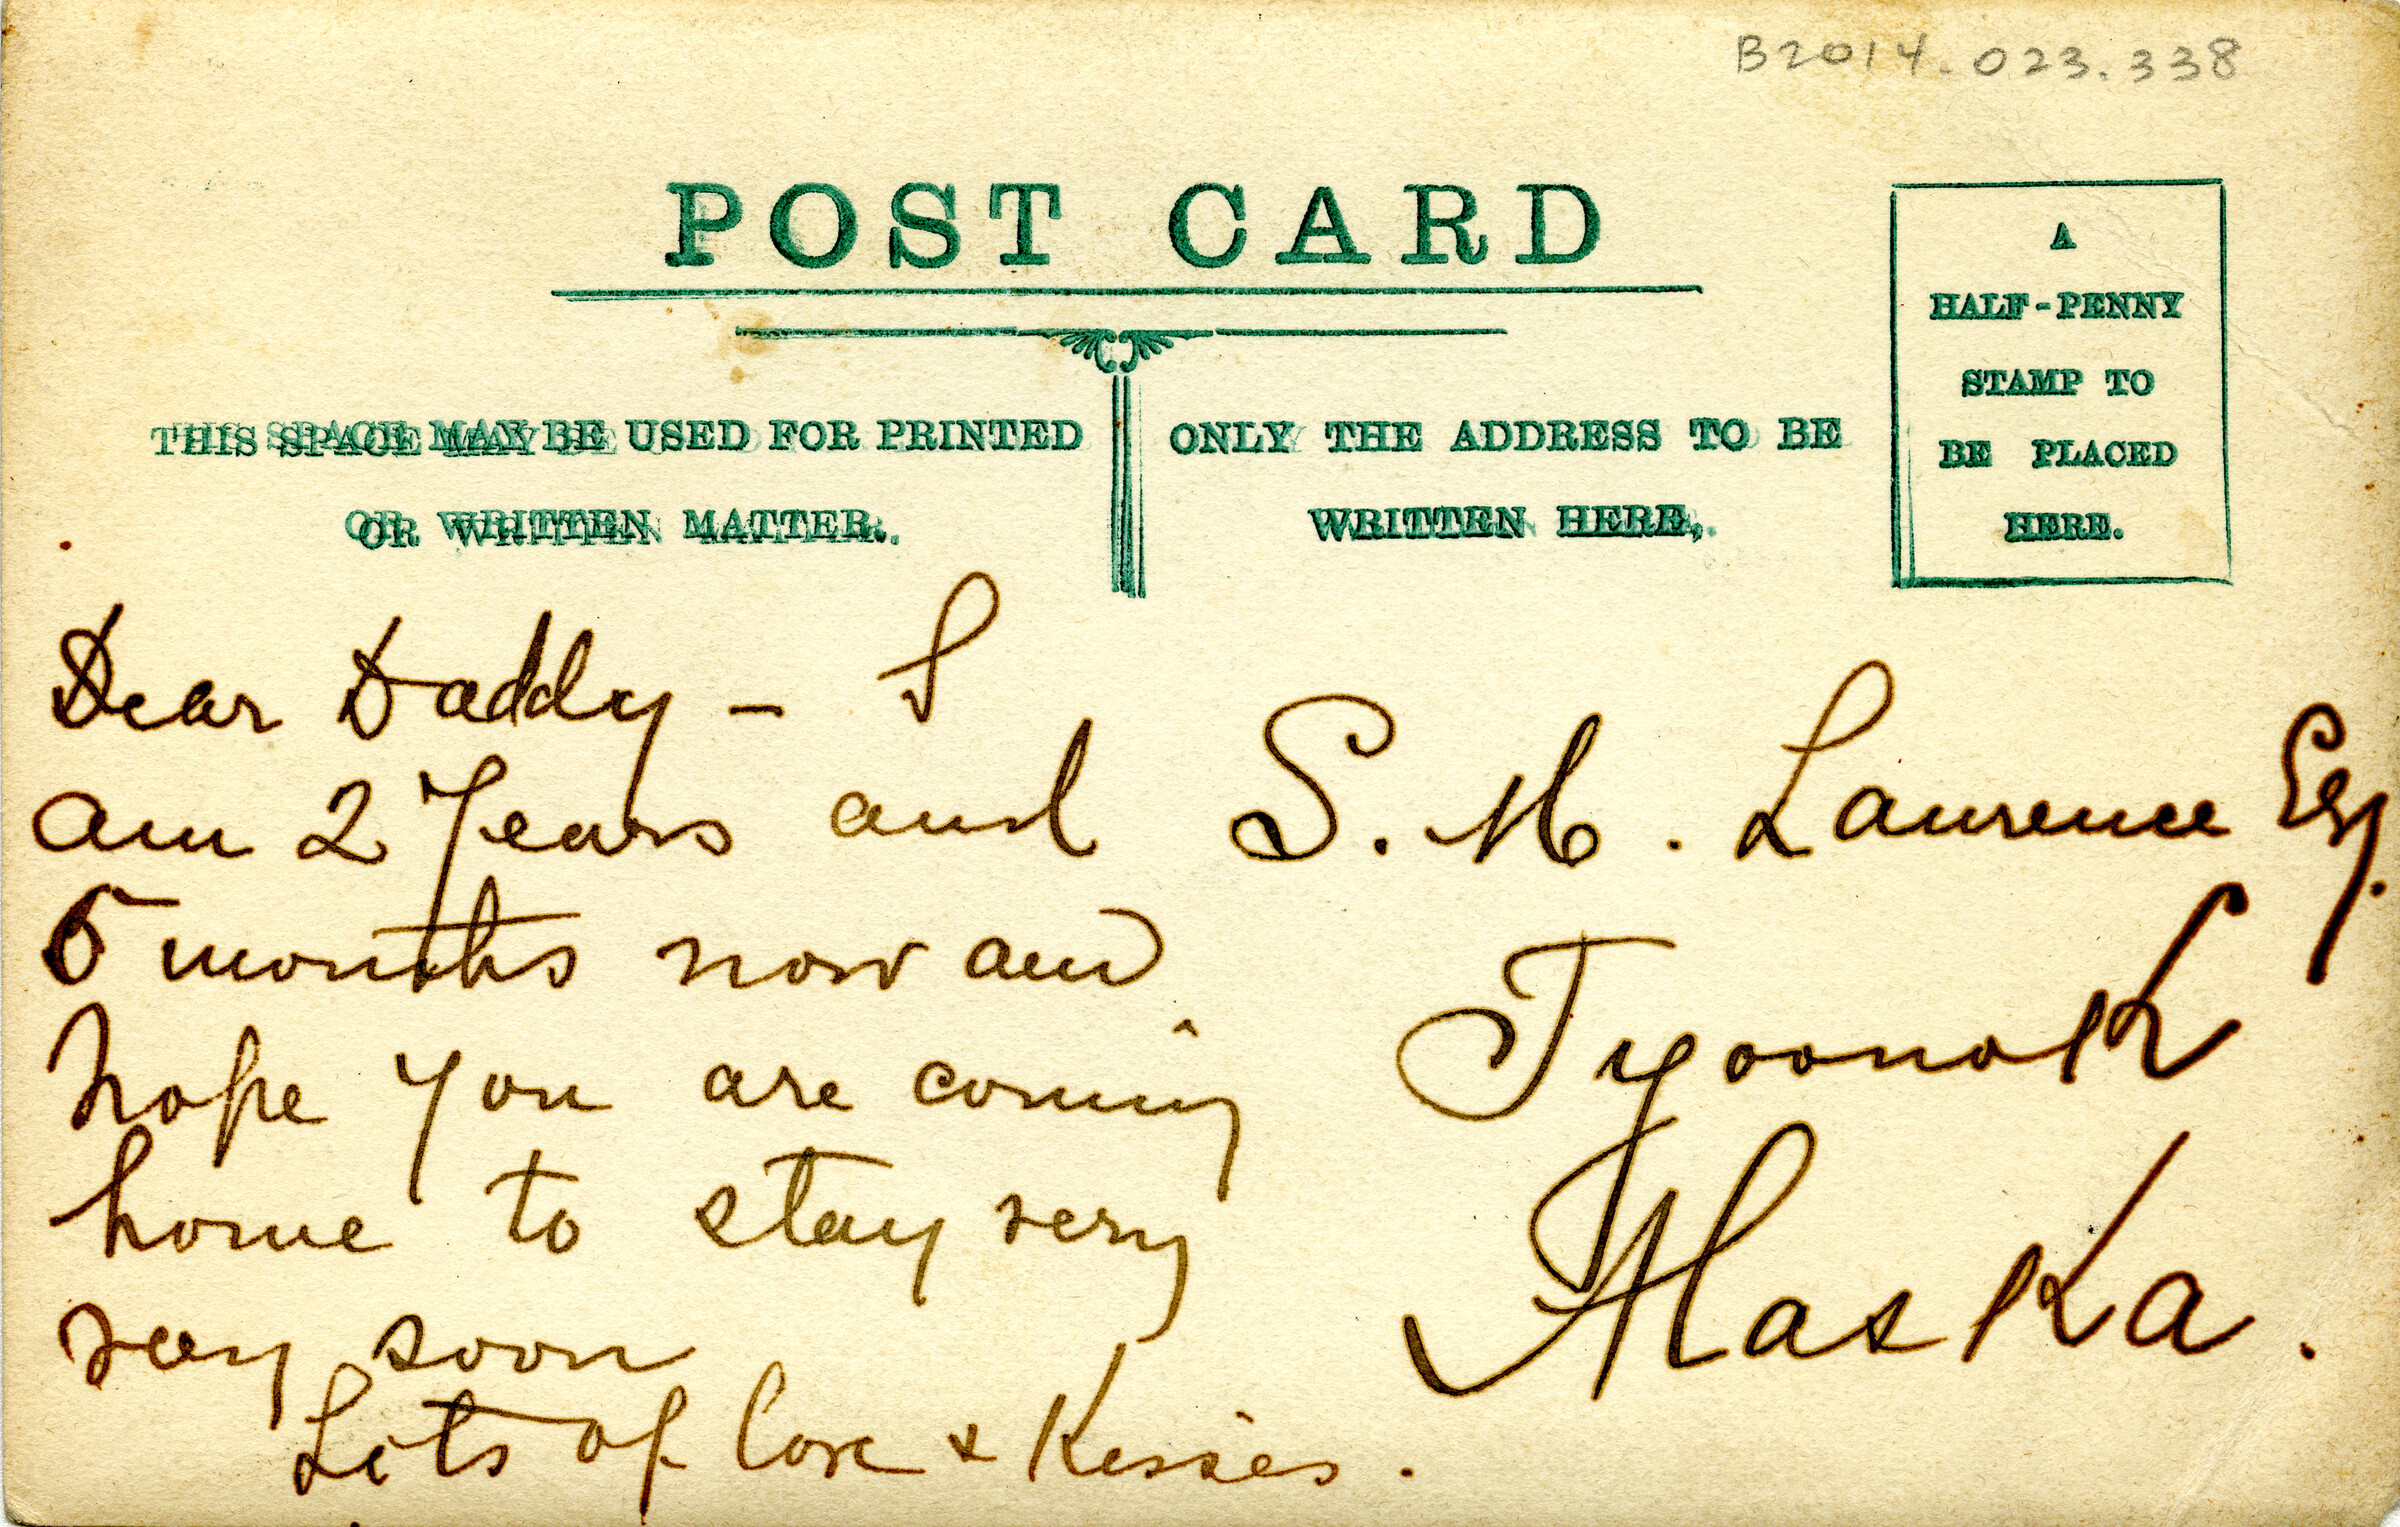 B2014.023.338
POST CARD
THIS SPACE MAY BE USED FOR PRINTED
OR WRITTEN MATTER.
ONLY THE ADDRESS TO BE
WRITTEN HERE.
A
HALF-PENNY
STAMP TO
BE PLACED
HERE.
Dear Daddy – I
am 2 Years and
5 months now and
hope you are coming
home to stay very
very soon
Lots of love & Kisses.
S. M. Laurence Esq.
Tyoonok
Alaska.